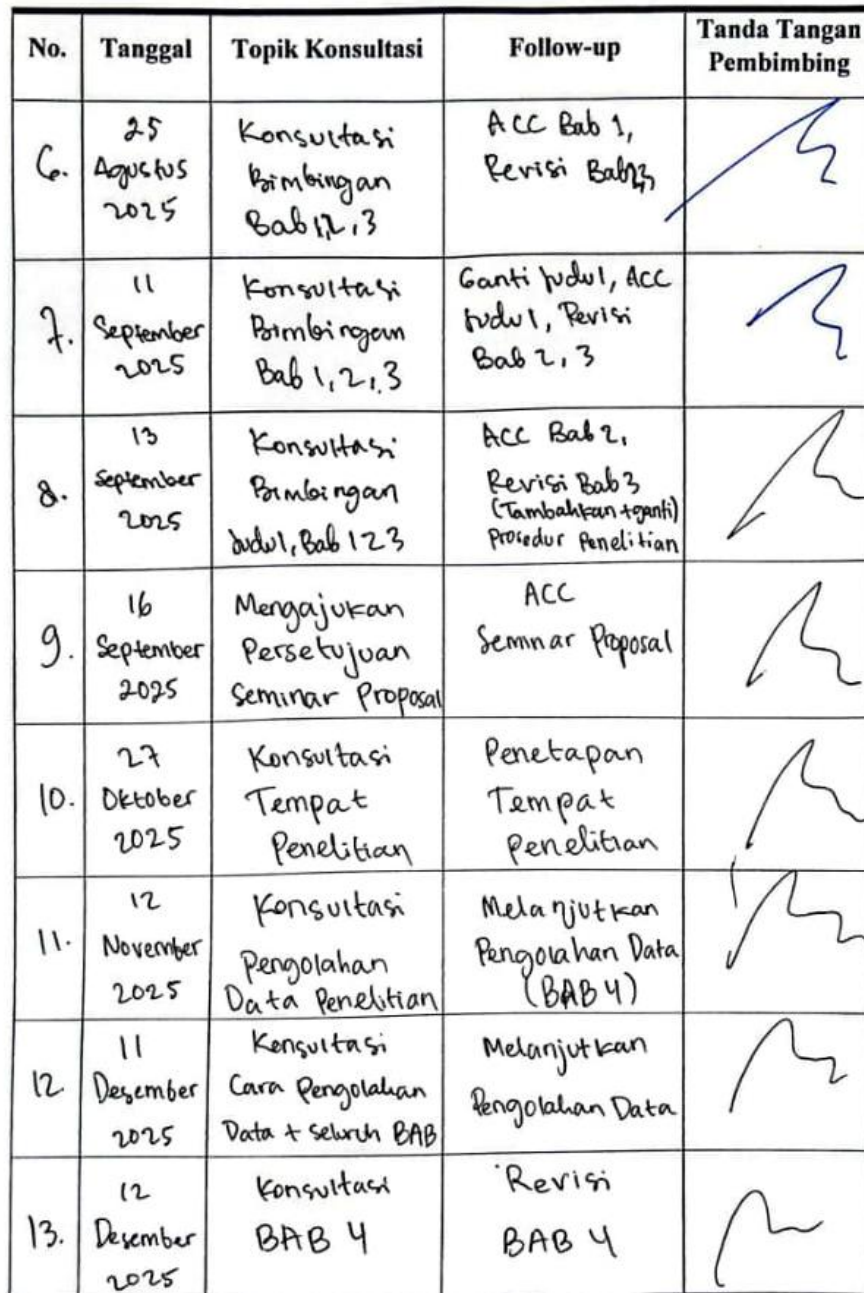 No. Tanggal Topik Konsultasi Follow-up Tanda Tangan Pembimbing
6.
25
Agustus
2025
Konsultasi
Bimbingan
Bab 1,2,3
ACC Bab 1,
Revisi Bab 2,3
7.
11
September
2025
Konsultasi
Bimbingan
Bab 1, 2, 3
Ganti Judul, ACC
Judul, Revisi
Bab 2, 3
8.
13
September
2025
Konsultasi
Bimbingan
Judul, Bab 1 2 3
ACC Bab 2,
Revisi Bab 3
(Tambahkan + ganti)
Prosedur Penelitian
9.
16
September
2025
Mengajukan
Persetujuan
Seminar Proposal
ACC
Seminar Proposal
10.
27
Oktober
2025
Konsultasi
Tempat
Penelitian
Penetapan
Tempat
Penelitian
11.
12
November
2025
Konsultasi
Pengolahan
Data Penelitian
Melanjutkan
Pengolahan Data
(BAB 4)
12.
11
Desember
2025
Konsultasi
Cara Pengolahan
Data + seluruh BAB
Melanjutkan
Pengolahan Data
13.
12
Desember
2025
Konsultasi
BAB 4
Revisi
BAB 4